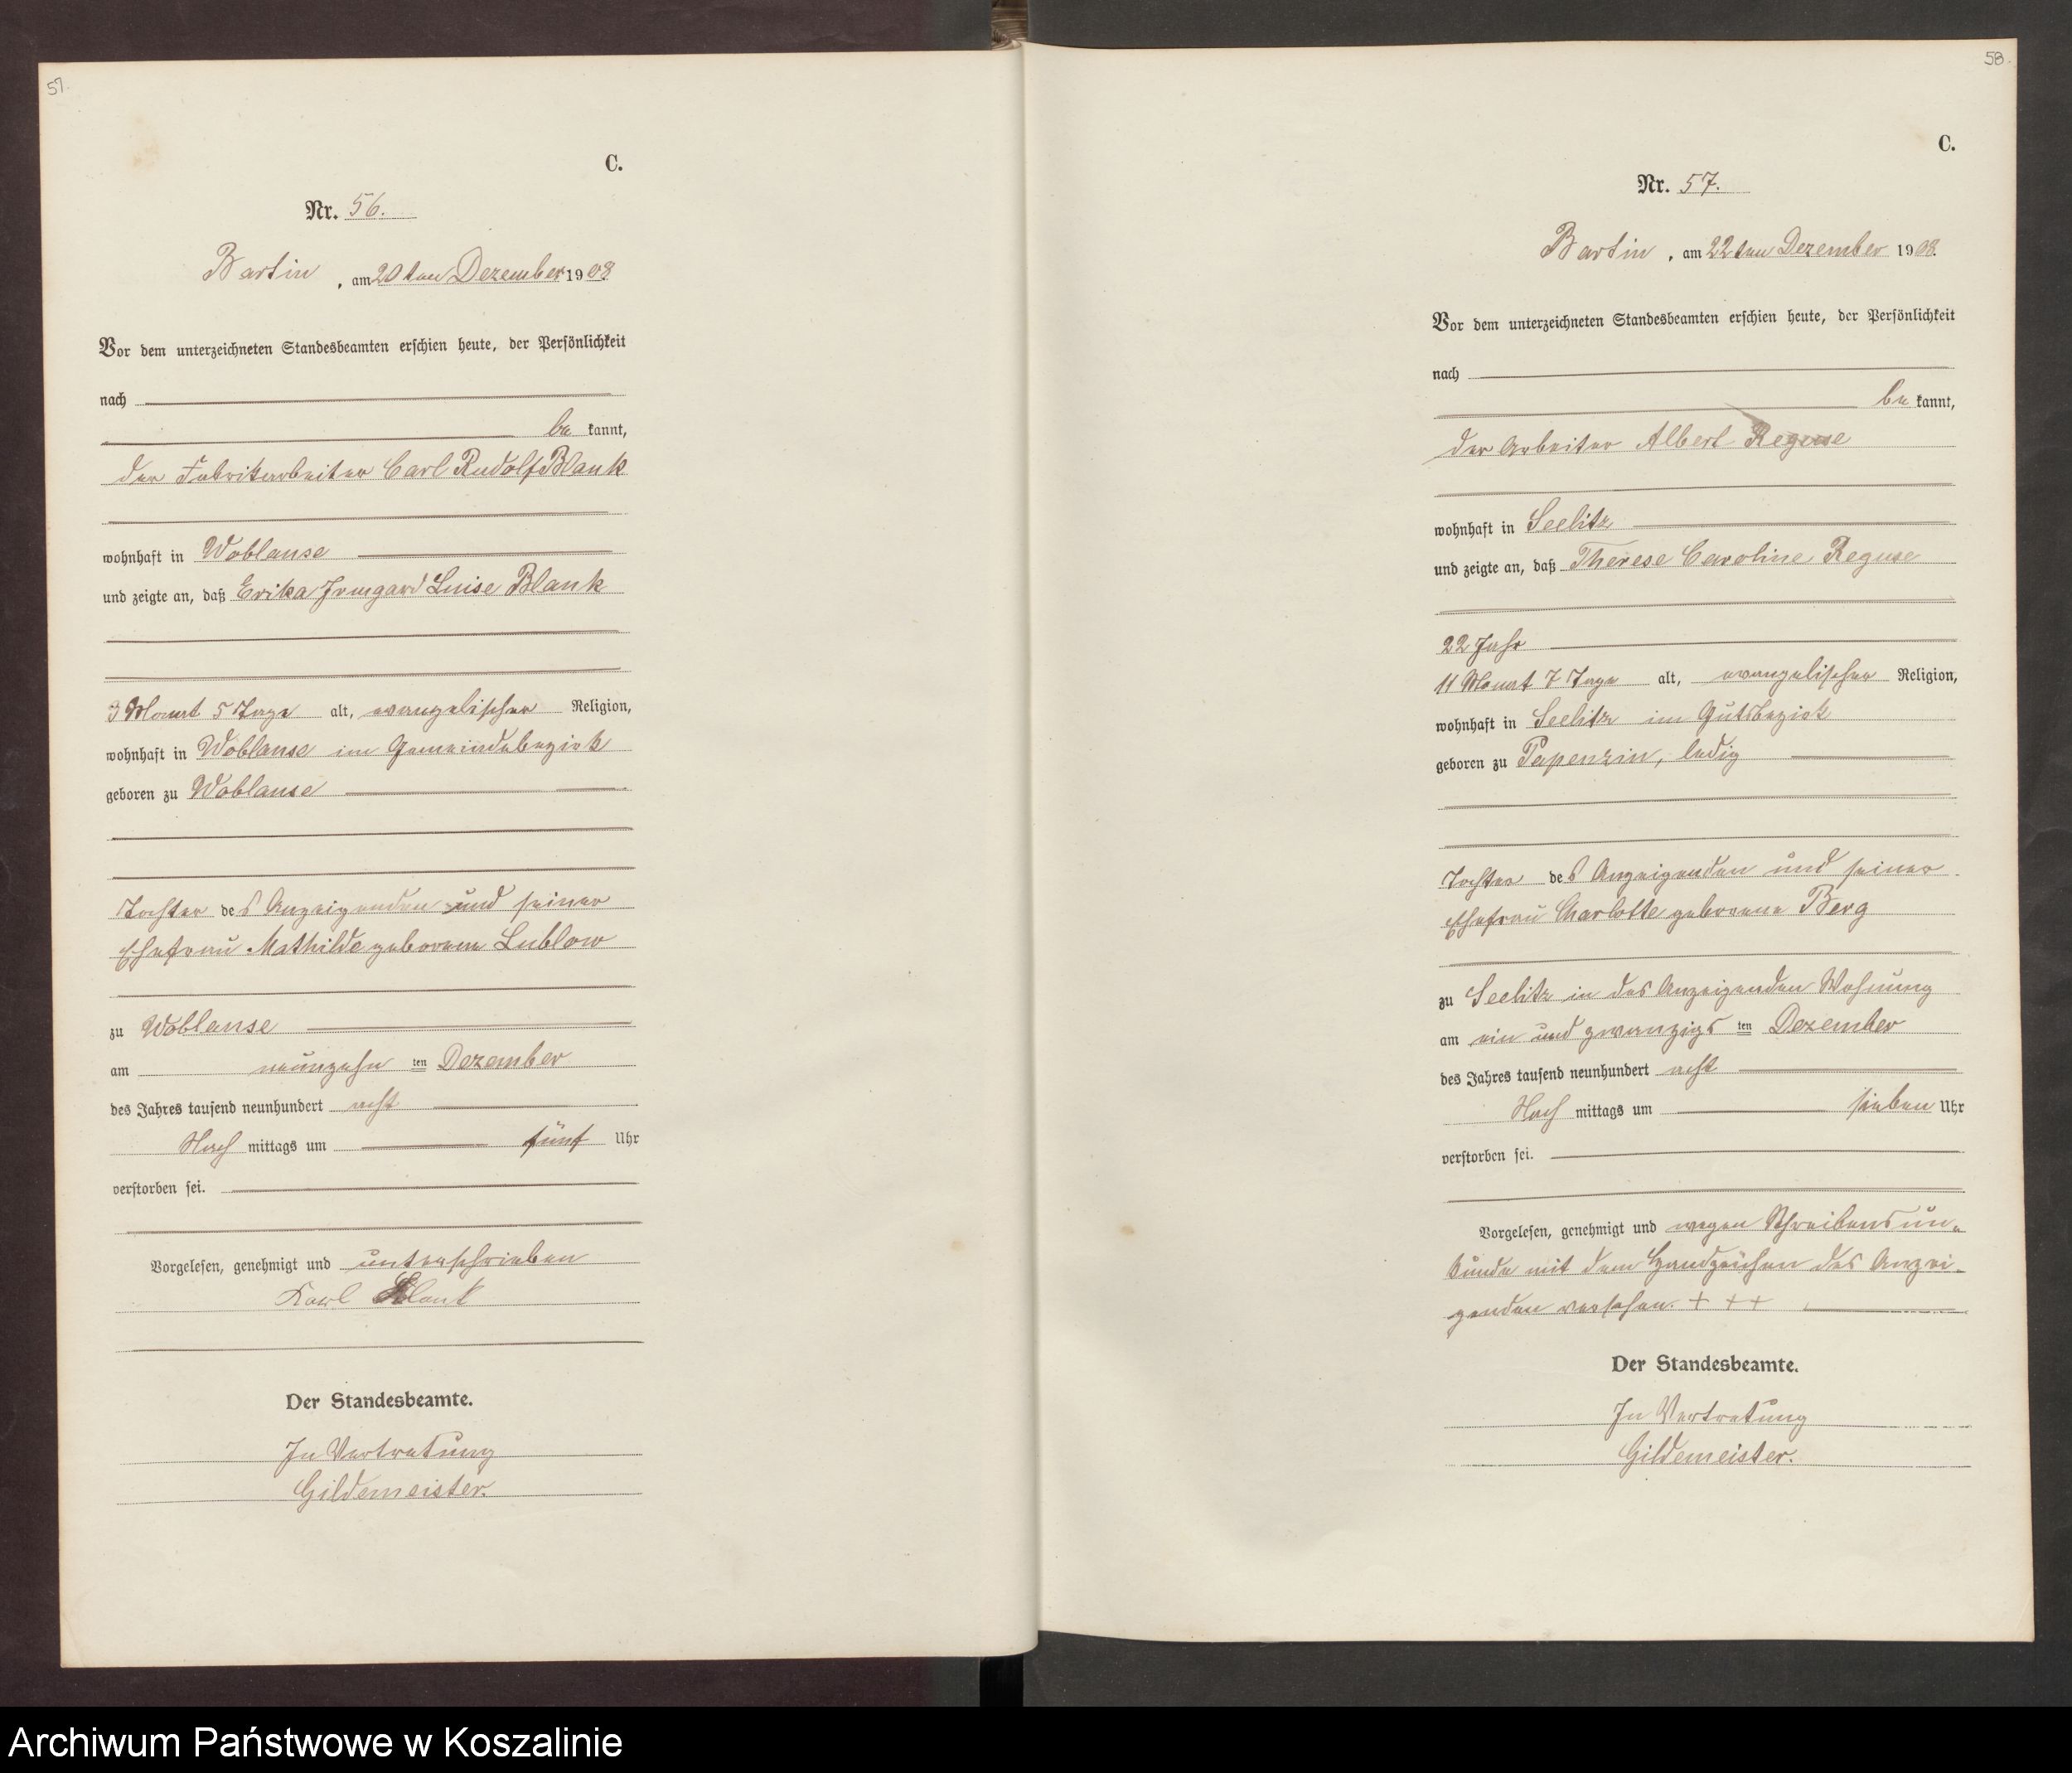 57.
C.
Nr. 56.
Bartin, am 20ten Dezember 1908
Vor dem unterzeichneten Standesbeamten erschien heute, der Persönlichkeit
nach
be kannt,
der Fabrikarbeiter Carl Rudolf Blank
wohnhaft in Woblanse
und zeigte an, daß Erika Irmgard Luise Blank
3 Monat 5 Tage alt, evangelischer Religion,
wohnhaft in Woblanse im Gemeindebezirk
geboren zu Woblanse
Tochter des Anzeigenden und seiner
Ehefrau Mathilde geborene Lublow
zu Woblanse
am neunzehn ten Dezember
des Jahres tausend neunhundert acht
Nach mittags um fünf Uhr
verstorben sei.
Vorgelesen, genehmigt und unterschrieben
Karl Blank
Der Standesbeamte.
In Vertretung
Gildemeister.
58.
C.
Nr. 57.
Bartin, am 22ten Dezember 1908.
Vor dem unterzeichneten Standesbeamten erschien heute, der Persönlichkeit
nach
be kannt,
der Arbeiter Albert Reguse
wohnhaft in Seelitz
und zeigte an, daß Therese Caroline Reguse
22 Jahr
11 Monat 7 Tage alt, evangelischer Religion,
wohnhaft in Seelitz im Gutsbezirk
geboren zu Papenzin, ledig
Tochter des Anzeigenden und seiner
Ehefrau Charlotte geborene Berg
zu Seelitz in des Anzeigenden Wohnung
am ein und zwanzigs ten Dezember
des Jahres tausend neunhundert acht
Nach mittags um sieben Uhr
verstorben sei.
Vorgelesen, genehmigt und wegen Schreibensun-
kunde mit dem Handzeichen des Anzei-
genden versehen. + + +
Der Standesbeamte.
In Vertretung
Gildemeister.
Archiwum Państwowe w Koszalinie